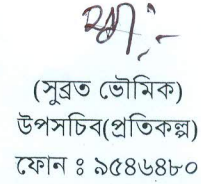 (সুব্রত ভৌমিক)
উপসচিব(প্রতিকল্প)
ফোন ঃ ৯৫৪৬৪৮০